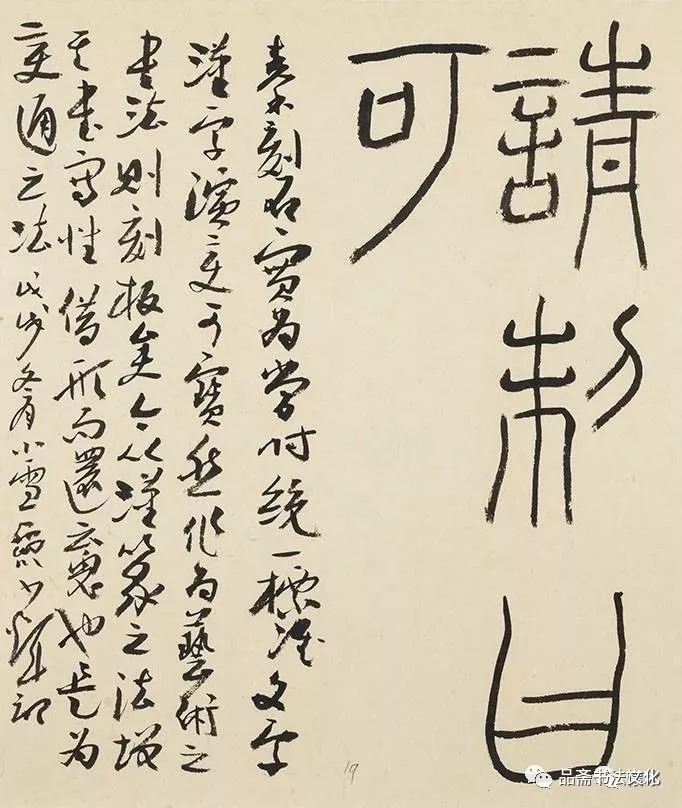 請制曰
可
秦刻石實為當時統一標準文字
漢字演變可寶然為藝術之
書法則刻板矣今以漢篆之法增
其書寫性借形而還魂也是為
變通之法戊戌冬月小雪記
19
品斋书法文化